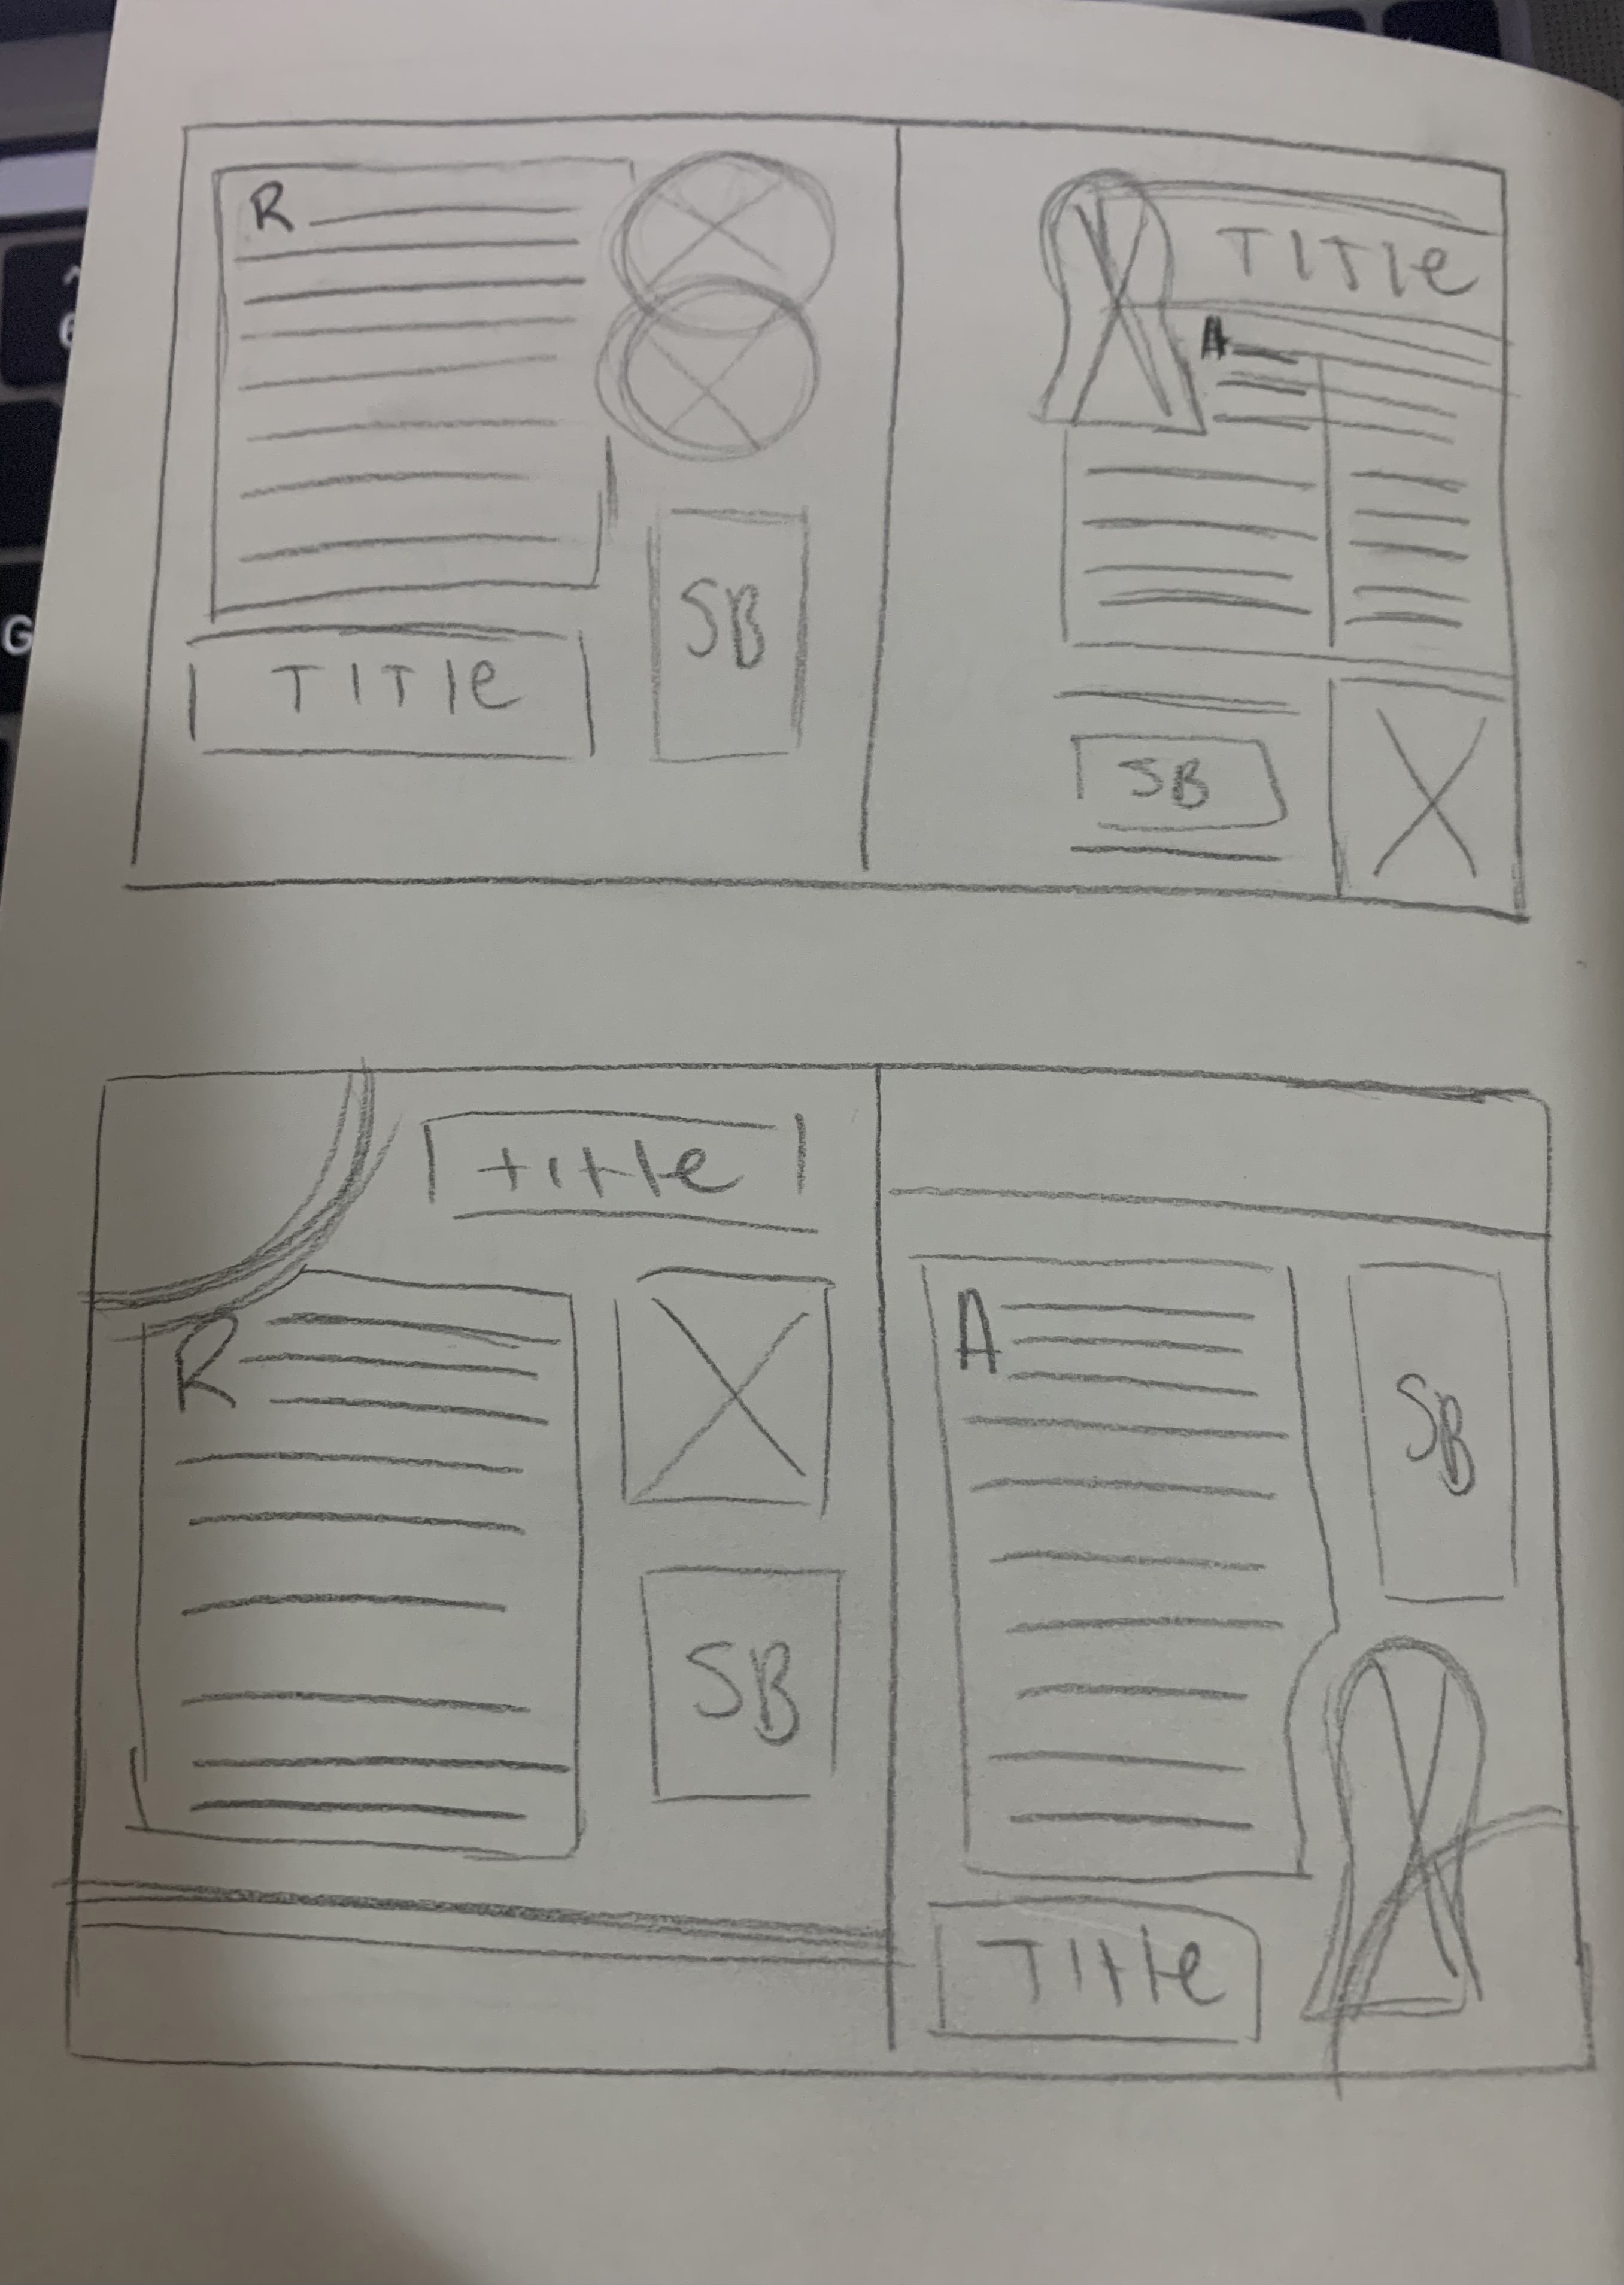 R
TITle
SB
TITle
A
SB
title
R
SB
A
SB
TITle